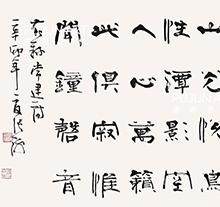 山光悦鳥
性潭影空
人心萬籟
此俱寂惟
聞鐘磬音
常建詩
辛卯年夏張海